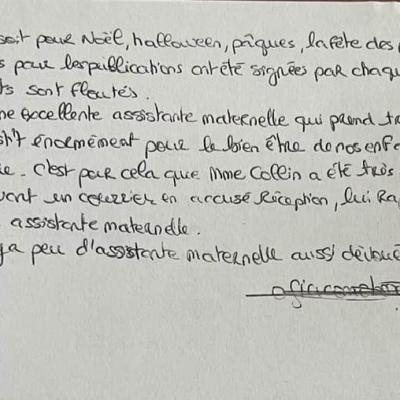 soit pour Noël, halloween, pâques, la fête des
s pour les publications ont été signées par chaq
ts sont floutés.
ne excellente assistante maternelle qui prend
énormément pour le bien être de nos enf
ie. C'est pour cela que Mme Collin a été très
vant un courrier en accusé Réception, lui Ra
assistante maternelle.
ya peu d'assistante maternelle aussi dévoué